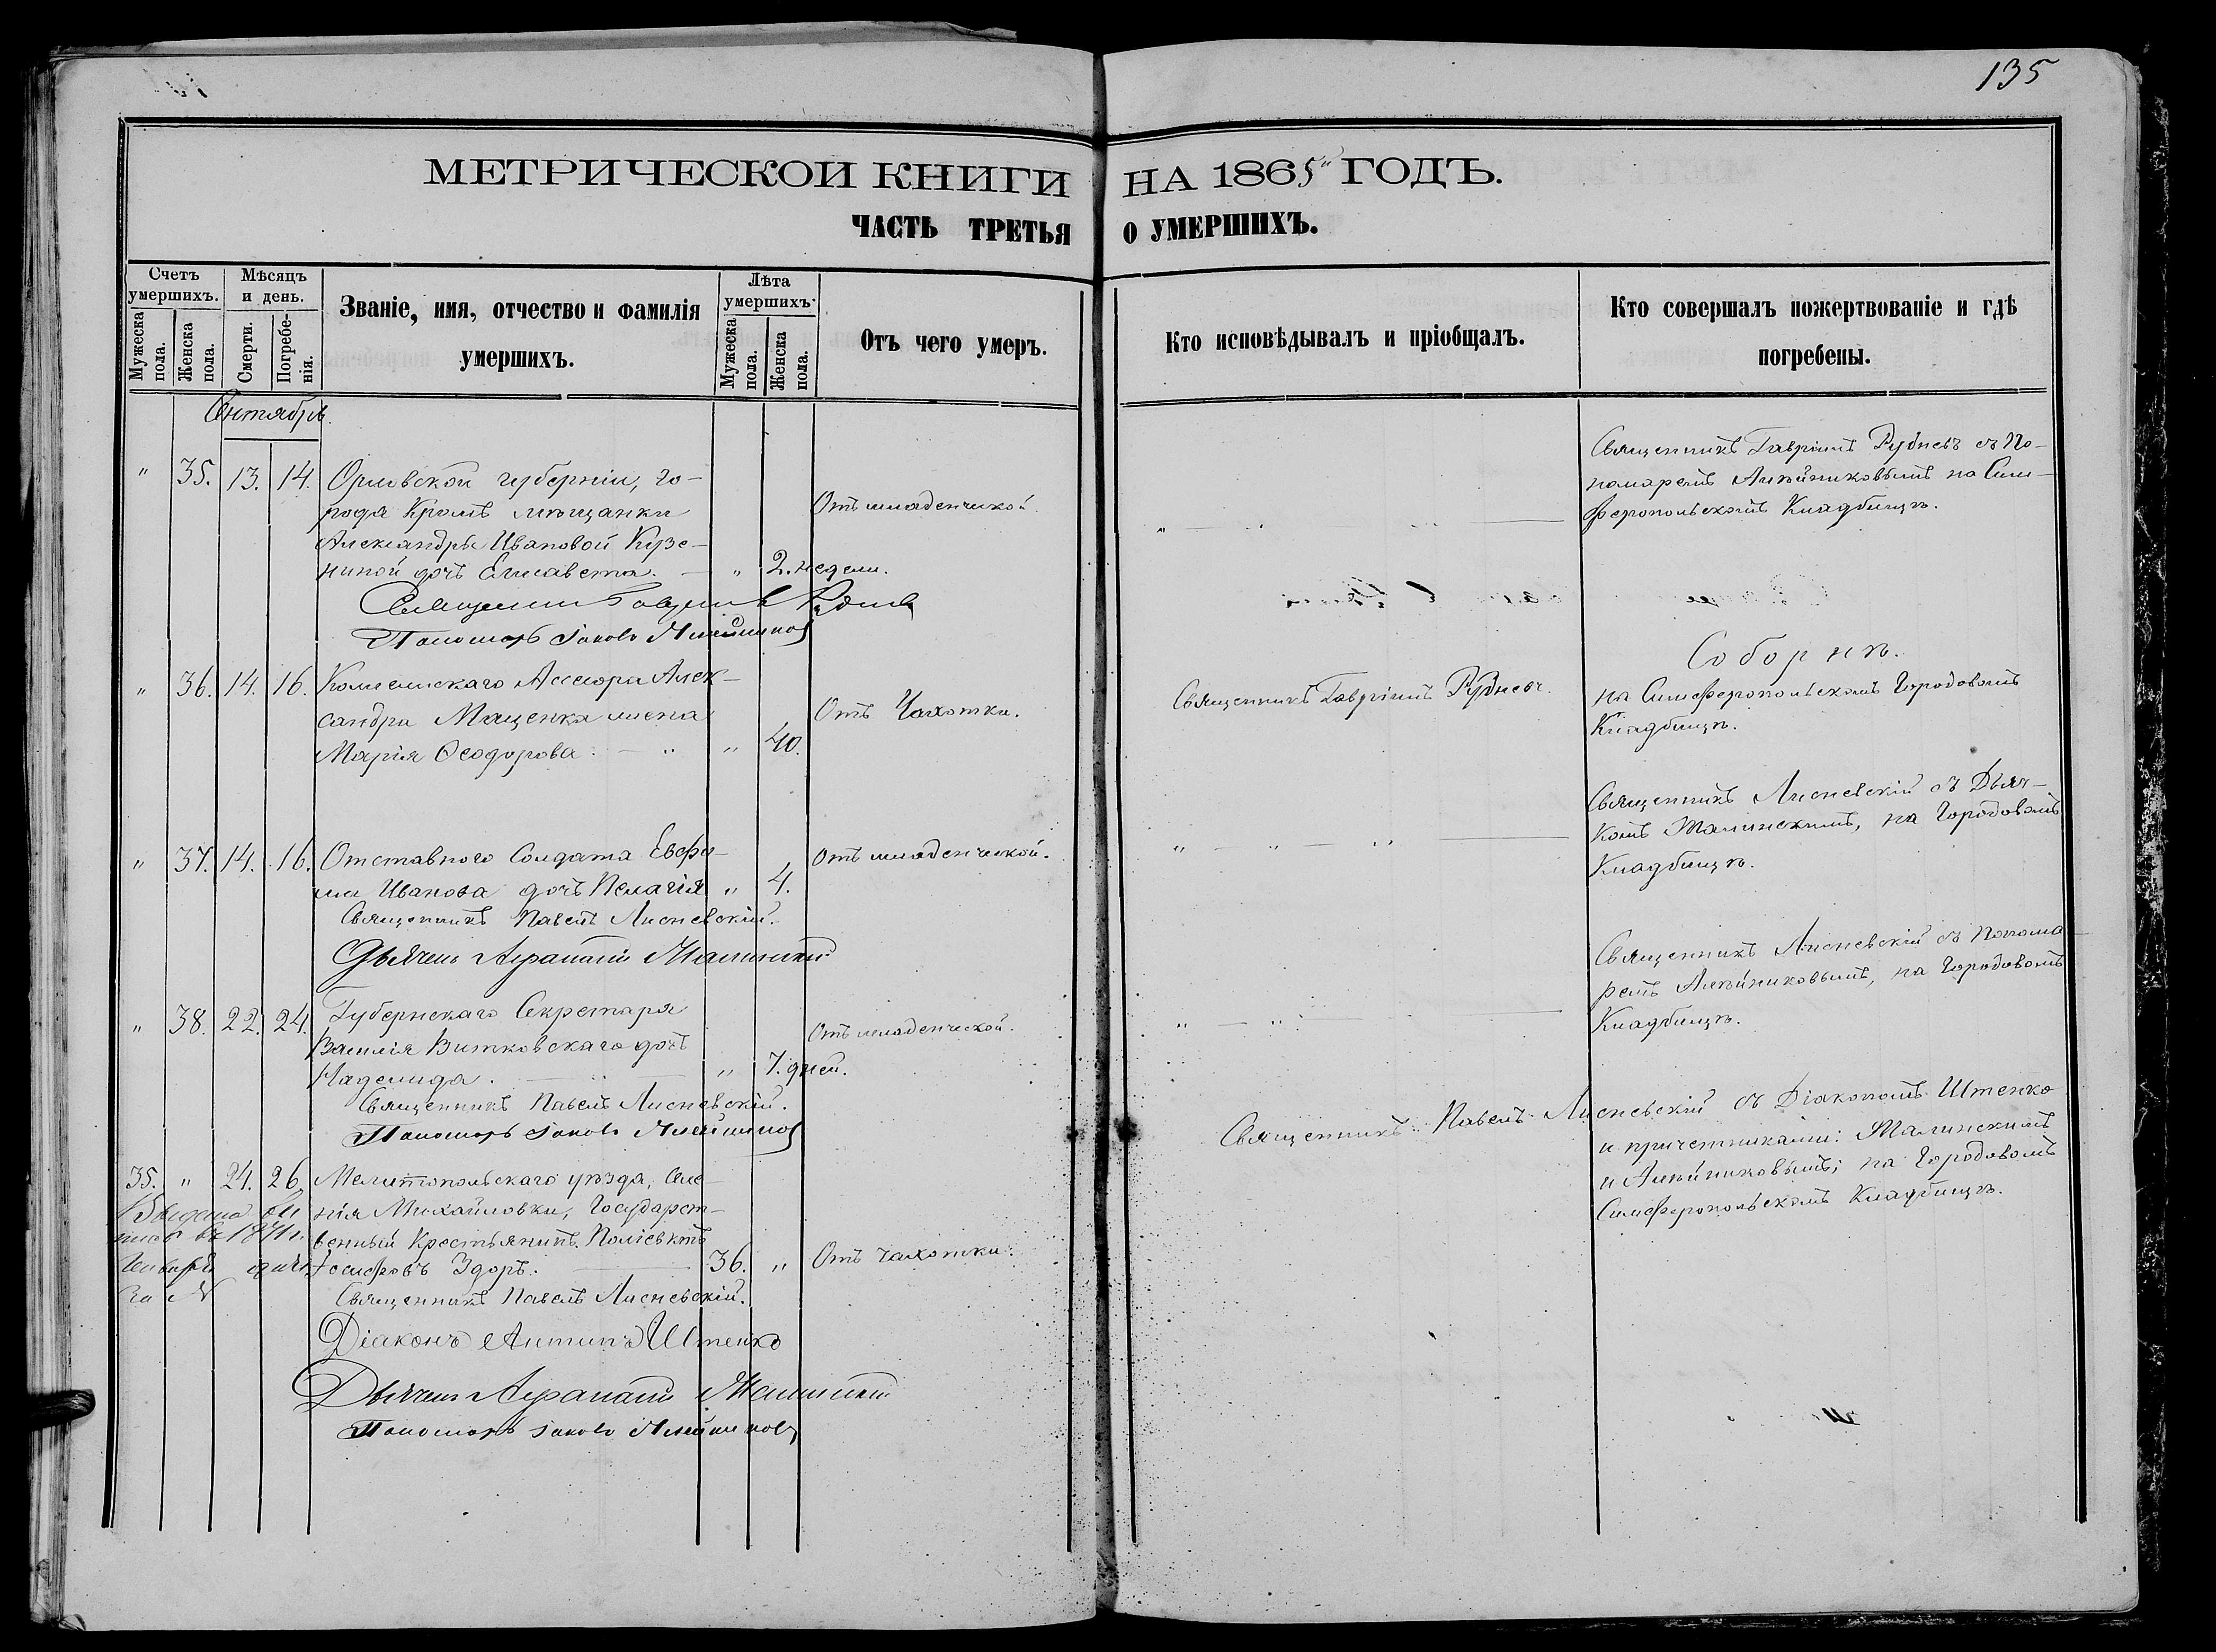 135
МЕТРИЧЕСКОЙ КНИГИ НА 1865й ГОДЪ.
ЧАСТЬ ТРЕТЬЯ О УМЕРШИХЪ.
Счетъ умершихъ.
Мужеска пола.
Женска пола.
Мѣсяцъ и день.
Смерти.
Погребенія.
Званіе, имя, отчество и фамилія
умершихъ.
Лѣта умершихъ.
Мужеска пола.
Женска пола.
Отъ чего умеръ.
Кто исповѣдывалъ и пріобщалъ.
Кто совершалъ пожертвованіе и гдѣ
погребены.
Сентябрь.
" 35. 13. 14. Орловской губерніи, го-
рода Кромъ мѣщанки
Александры Ивановой Кузе-
ниной дочь Елисавета. — " 2. недели.
Отъ младенческой.
Священникъ Гавріилъ Рудневъ съ По-
номаремъ Алейниковымъ на Сим-
феропольскомъ Кладбищѣ.
Священникъ Гавріилъ Рудневъ
Пономарь Іаковъ Алейниковъ
" 36. 14. 16. Коллежскаго Ассесора Алек-
сандра Маценка жена
Марія Ѳеодорова. — " 40.
Отъ Чахотки.
Священникъ Гавріилъ Рудневъ.
Соборнѣ.
на Симферопольскомъ Городовомъ
Кладбищѣ.
" 37. 14. 16. Отставного Солдата Евфи-
ма Иванова дочь Пелагія " 4.
Отъ младенческой.
Священникъ Лисневскій съ Дьяч-
комъ Малинскимъ, на Городовомъ
Кладбищѣ.
Священникъ Павелъ Лисневскій.
Дьячекъ Малинскій
" 38. 22. 24. Губернскаго Секретаря
Василія Витковскаго дочь
Надежда. — " 7. дней.
Отъ младенческой.
Священникъ Лисневскій съ Понома-
ремъ Алейниковымъ, на Городовомъ
Кладбищѣ.
Священникъ Павелъ Лисневскій.
Пономарь Іаковъ Алейниковъ
35. " 24. 26. Мелитопольскаго уѣзда, Селе-
нія Михайловки, Государст-
венный Крестьянинъ Поліевктъ
Іосифовъ Здоръ. — 36. "
Отъ чахотки.
Священникъ Павелъ Лисневскій съ Діакономъ Штенко
и причетниками: Малинскимъ
и Алейниковымъ; на Городовомъ
Симферопольскомъ Кладбищѣ.
Января
За №
Священникъ Павелъ Лисневскій.
Діаконъ Антипъ Штенко
Дьячекъ Малинскій
Пономарь Іаковъ Алейниковъ